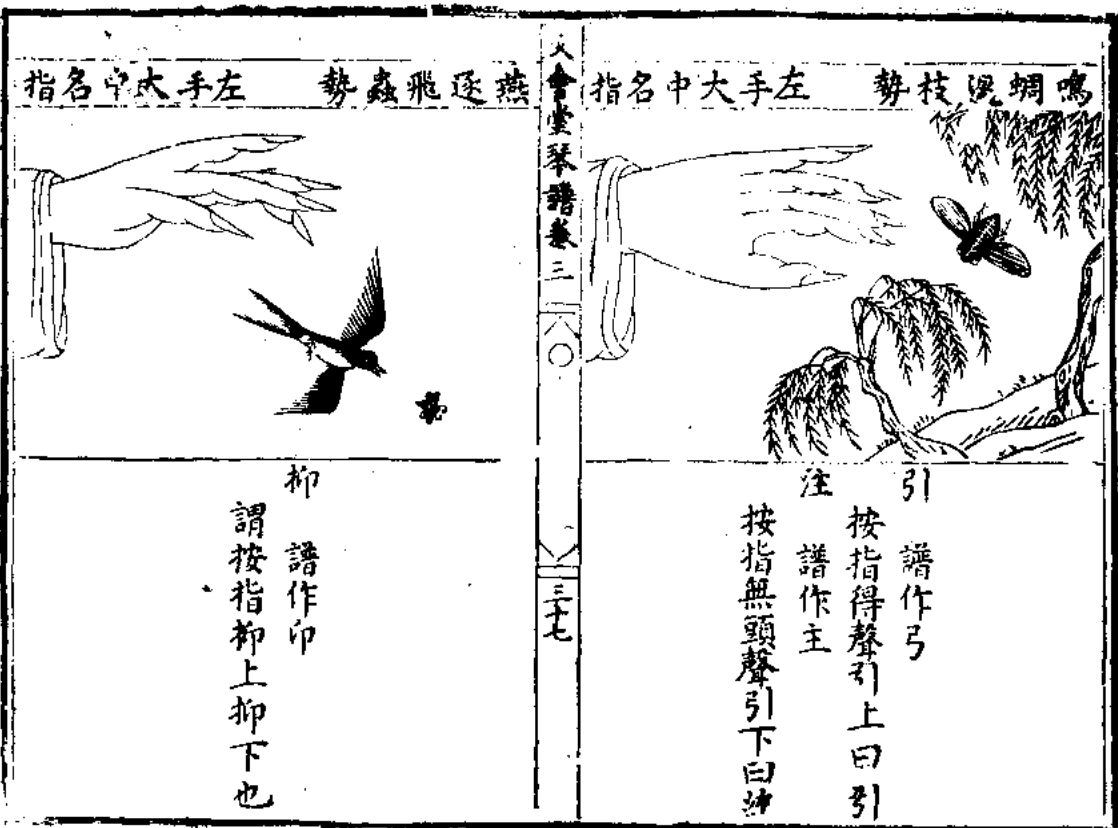 鳴蜩過枝勢　左手大中名指
引　譜作弓
按指得聲引上曰引
注　譜作主
按指無頭聲引下曰注
文會堂琴譜卷三
三十七
燕逐飛蟲勢　左手大中名指
抑　譜作印
謂按指抑上抑下也